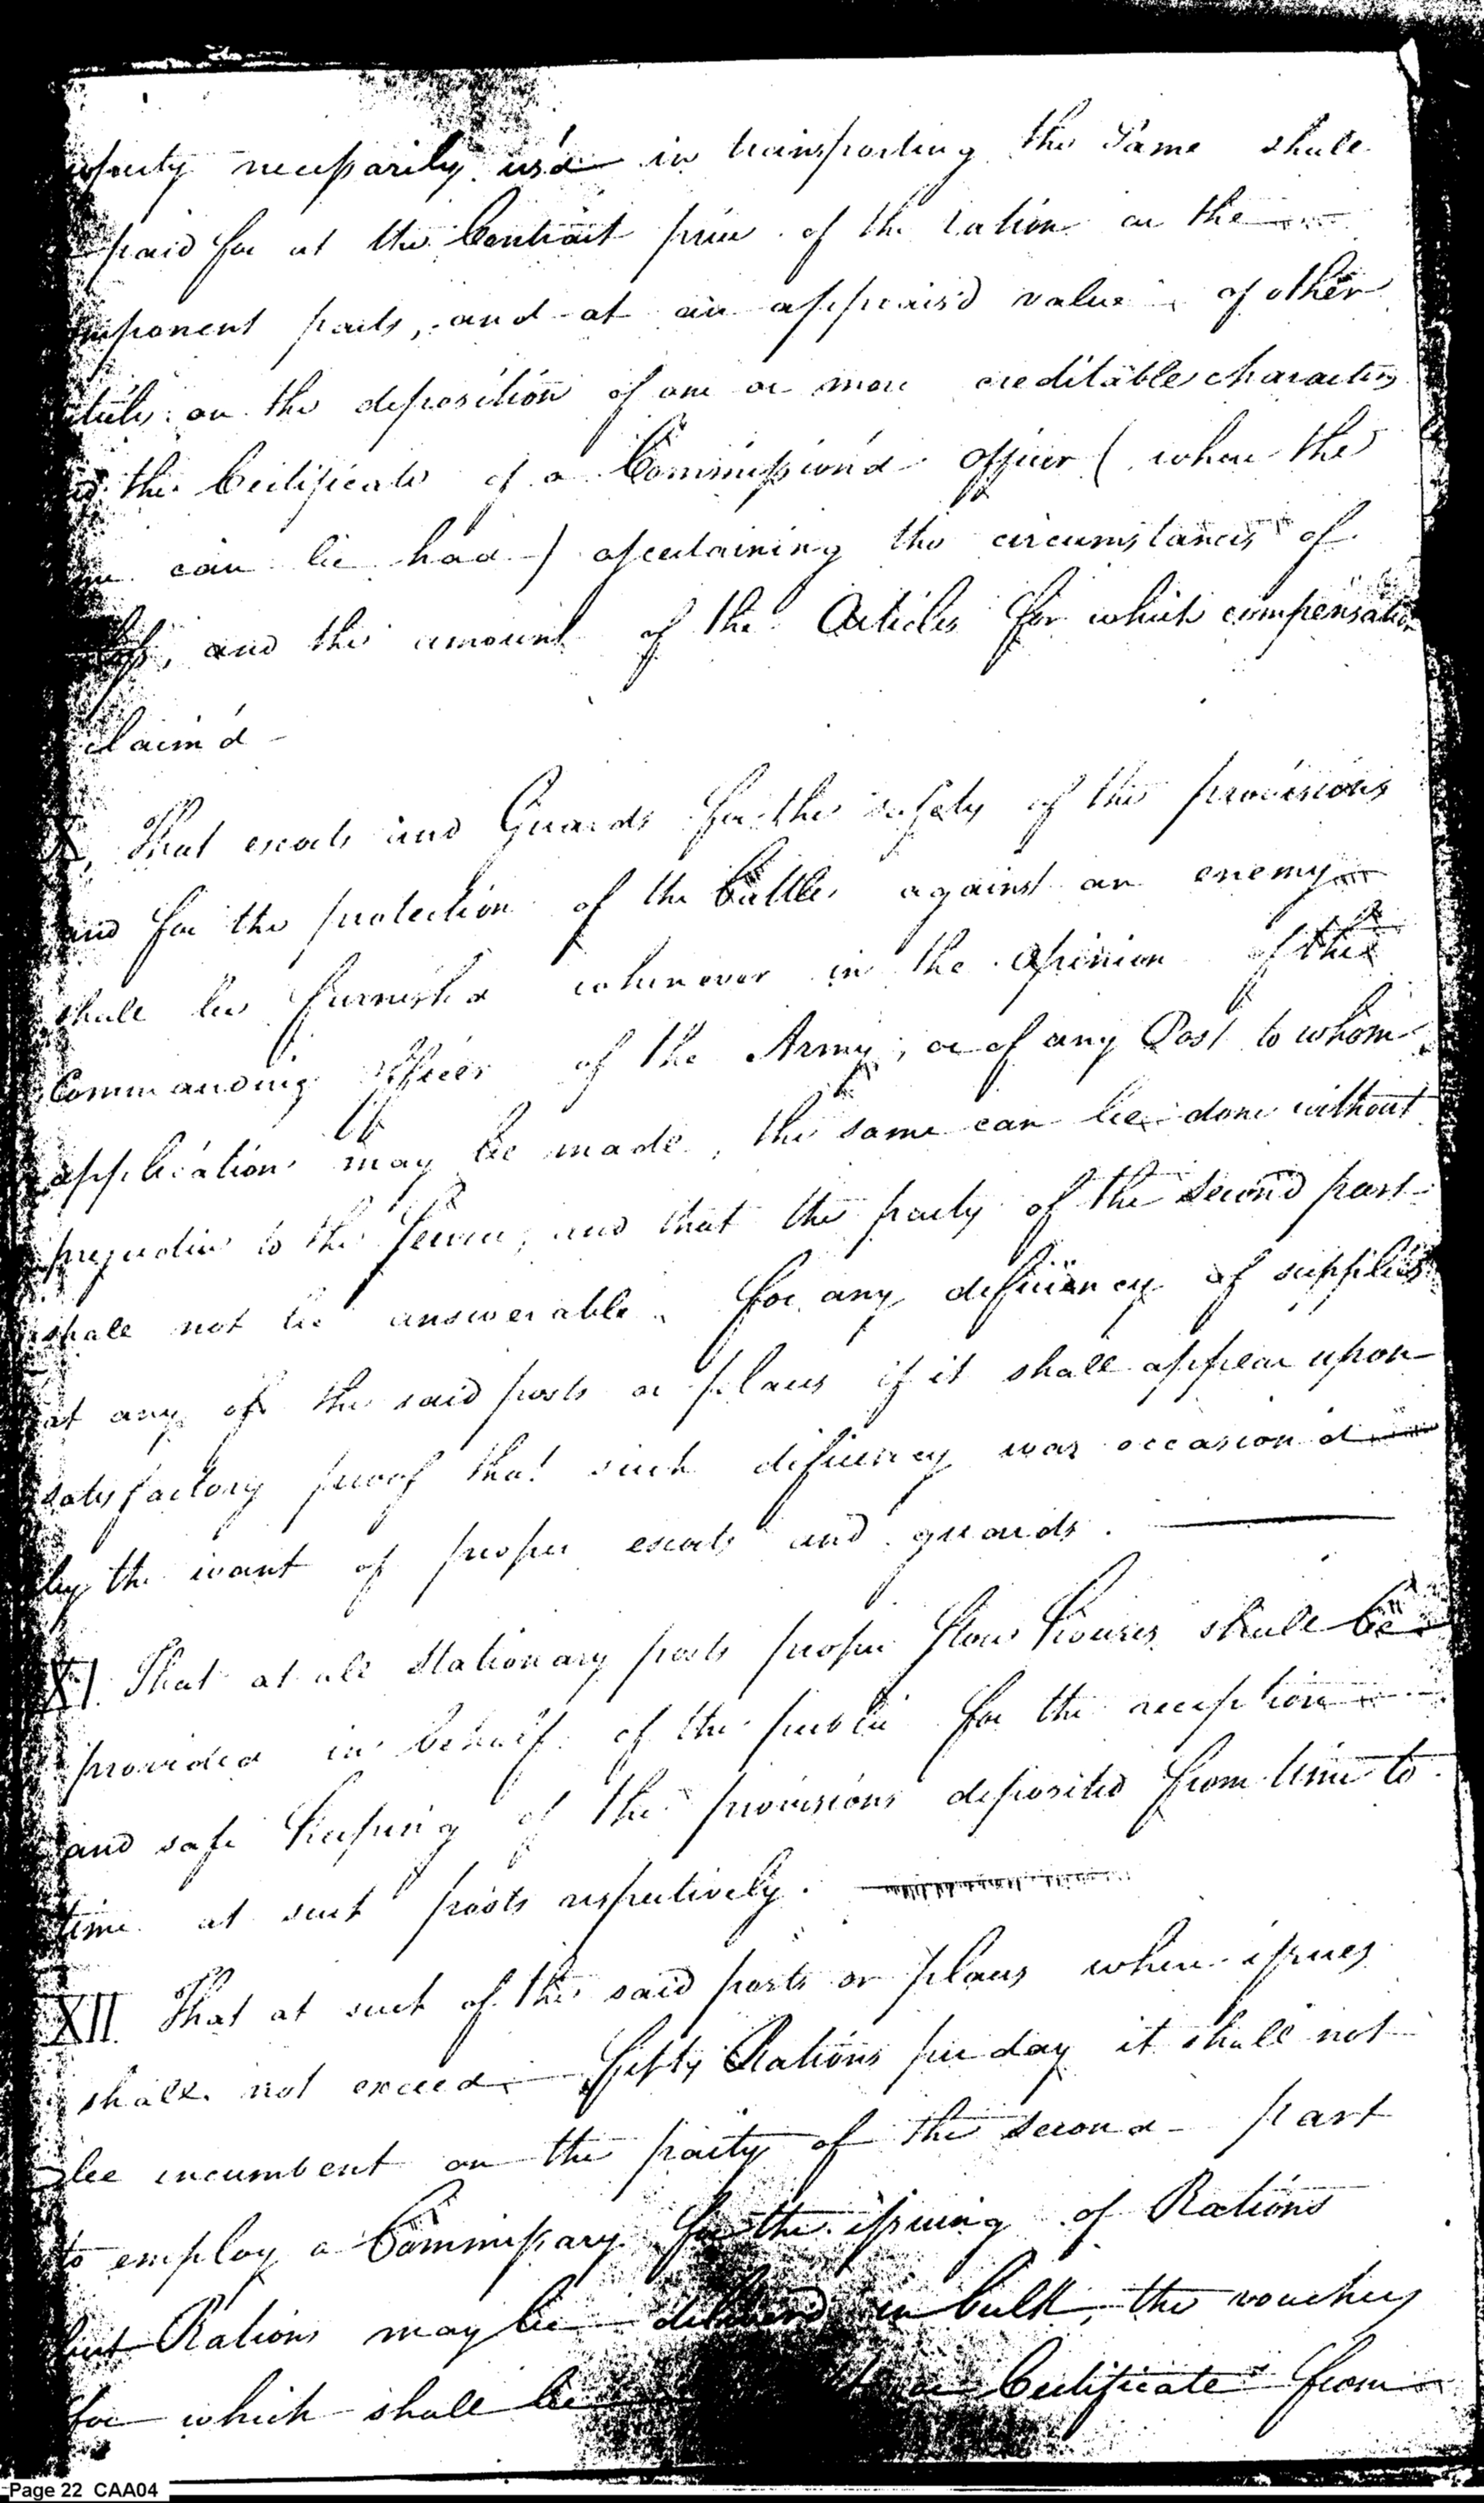 necessarily us'd in transporting the Same shall
paid for at the Contract price of the ration or the
mponent parts, and at an apprais'd value of other
on the deposition of one or more creditable characters
the Certificate of a Commission'd officer (when the
can be had) ascertaining the circumstances of
and the amount of the Articles for which compensation
claim'd
X, That escorts and Guards for the safety of the provisions
and for the protection of the Cattle against an enemy
shall be furnish'd whenever in the opinion of the
Commanding officer of the Army, or of any Post to whom
application may be made, the same can be done without
prejudice to the service, and that the party of the second part
shall not be answerable for any deficiency of supplies
at any of the said posts or places if it shall appear upon
satisfactory proof that such deficiency was occasion'd
by the want of proper escorts and guards.
XI. That at all stationary posts proper store houses shall be
provided in behalf of the public for the reception
and safe keeping of the provisions deposited from time to
time at such posts respectively.
XII. That at such of the said posts or places when issues
shall not exceed fifty Rations per day it shall not
be incumbent on the party of the second part
to employ a Commissary for the issuing of Rations
but Rations may be delivered in bulk, the vouchers
for which shall be Certificate from
Page 22 CAA04